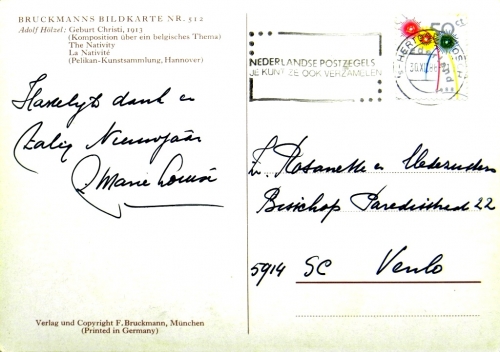 BRUCKMANNS BILDKARTE NR. 512
Adolf Hölzel: Geburt Christi, 1913
(Komposition über ein belgisches Thema)
The Nativity
La Nativité
(Pelikan-Kunstsammlung, Hannover)
Hartelijk dank en
Zalig Nieuwjaar
Z. Marie Louise
Verlag und Copyright F. Bruckmann, München
(Printed in Germany)
NEDERLANDSE POSTZEGELS
JE KUNT ZE OOK VERZAMELEN
50 ct
nederland
Z. Rosanette en Medezusters
Bisschop Paredisstraat 22
5914 SC Venlo